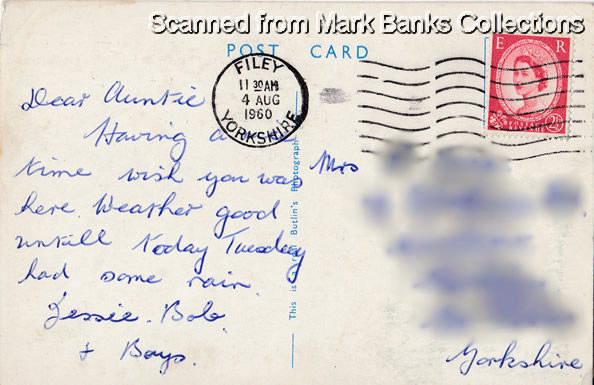 Scanned from Mark Banks Collections
POST CARD
FILEY
11 30AM
4 AUG
1960
YORKSHIRE
E R
POSTAGE
2½
Dear Auntie
Having a
time wish you was
here. Weather good
untill today Tuesday
had some rain.
Jessie. Bob
+ Boys.
This is a Butlin's Photograph
Mrs
Yorkshire